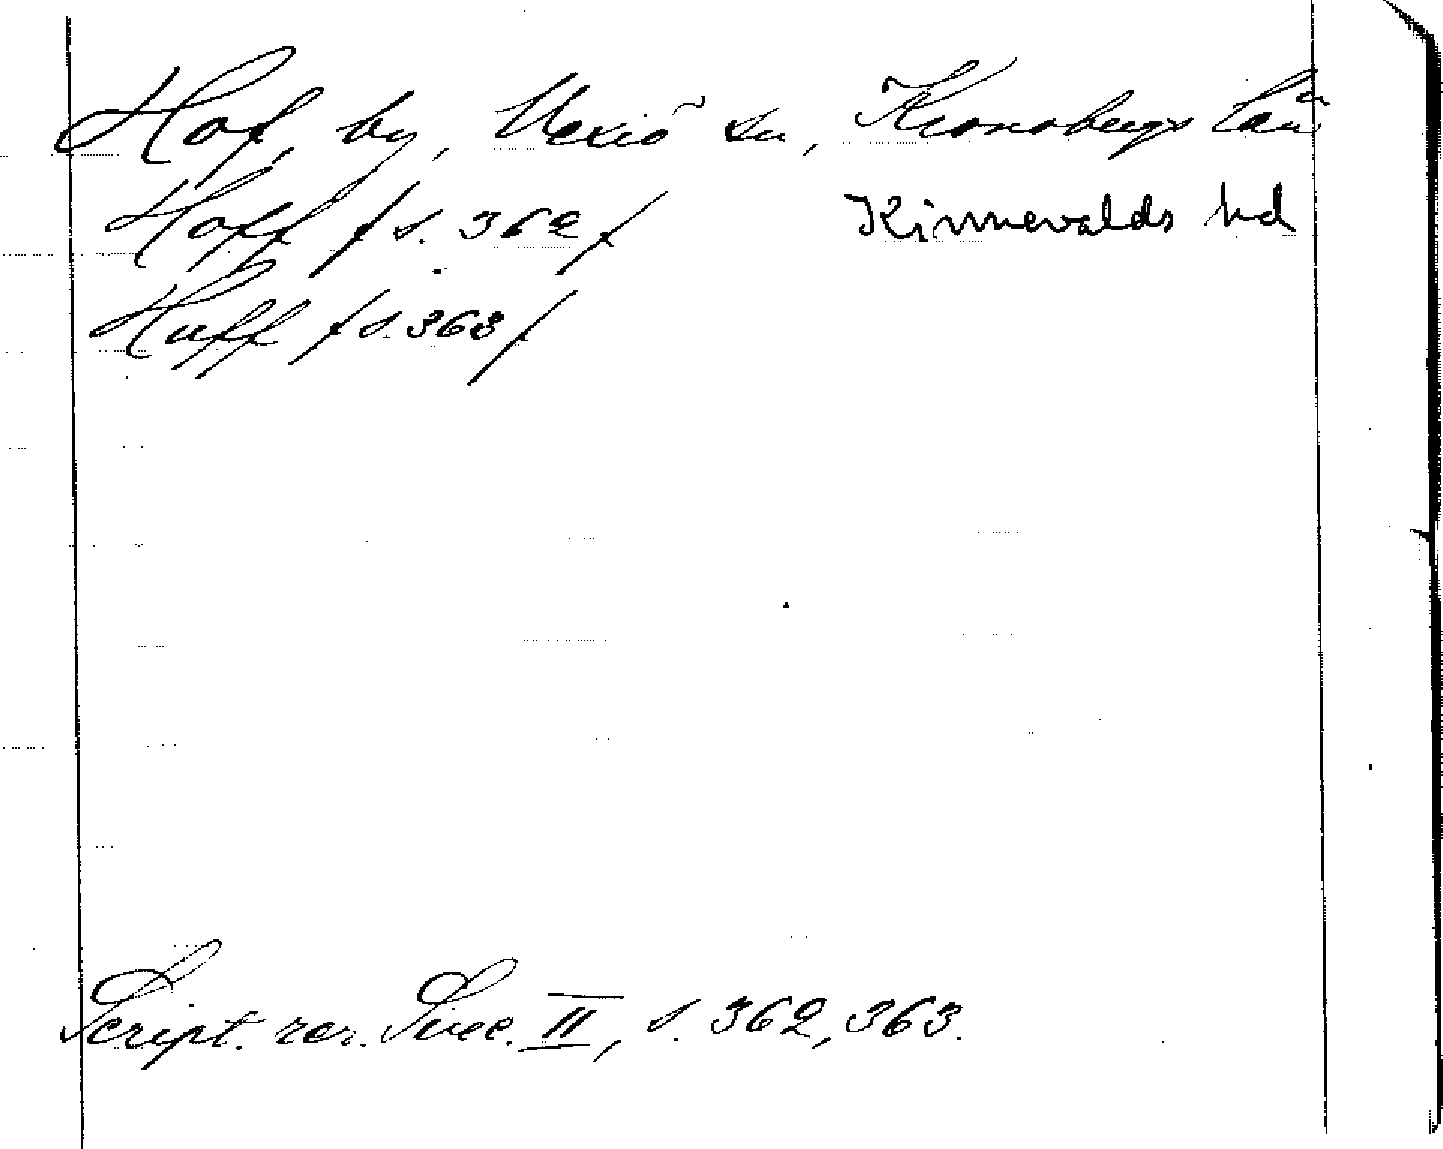 Hof, by, Vexiö sn, Kronobergs län
Hoff /s. 362/ Kinnevalds hd
Huff /s. 363/
Script. rer. Svec. II, s. 362, 363.